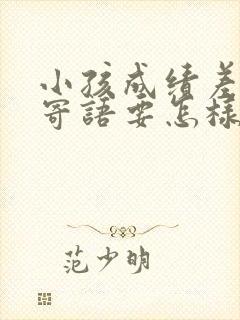 小孩成绩差
寄語要怎樣
范少明